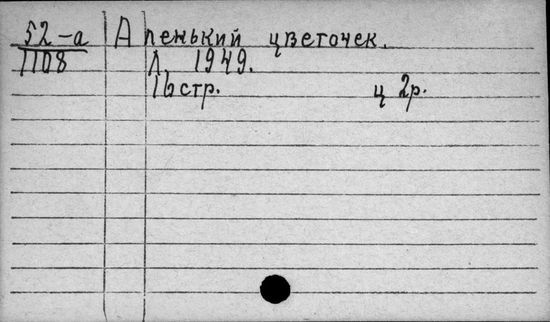 52-а Аленький цветочек.
1108 Л. 1949.
16 стр. ц 2р.